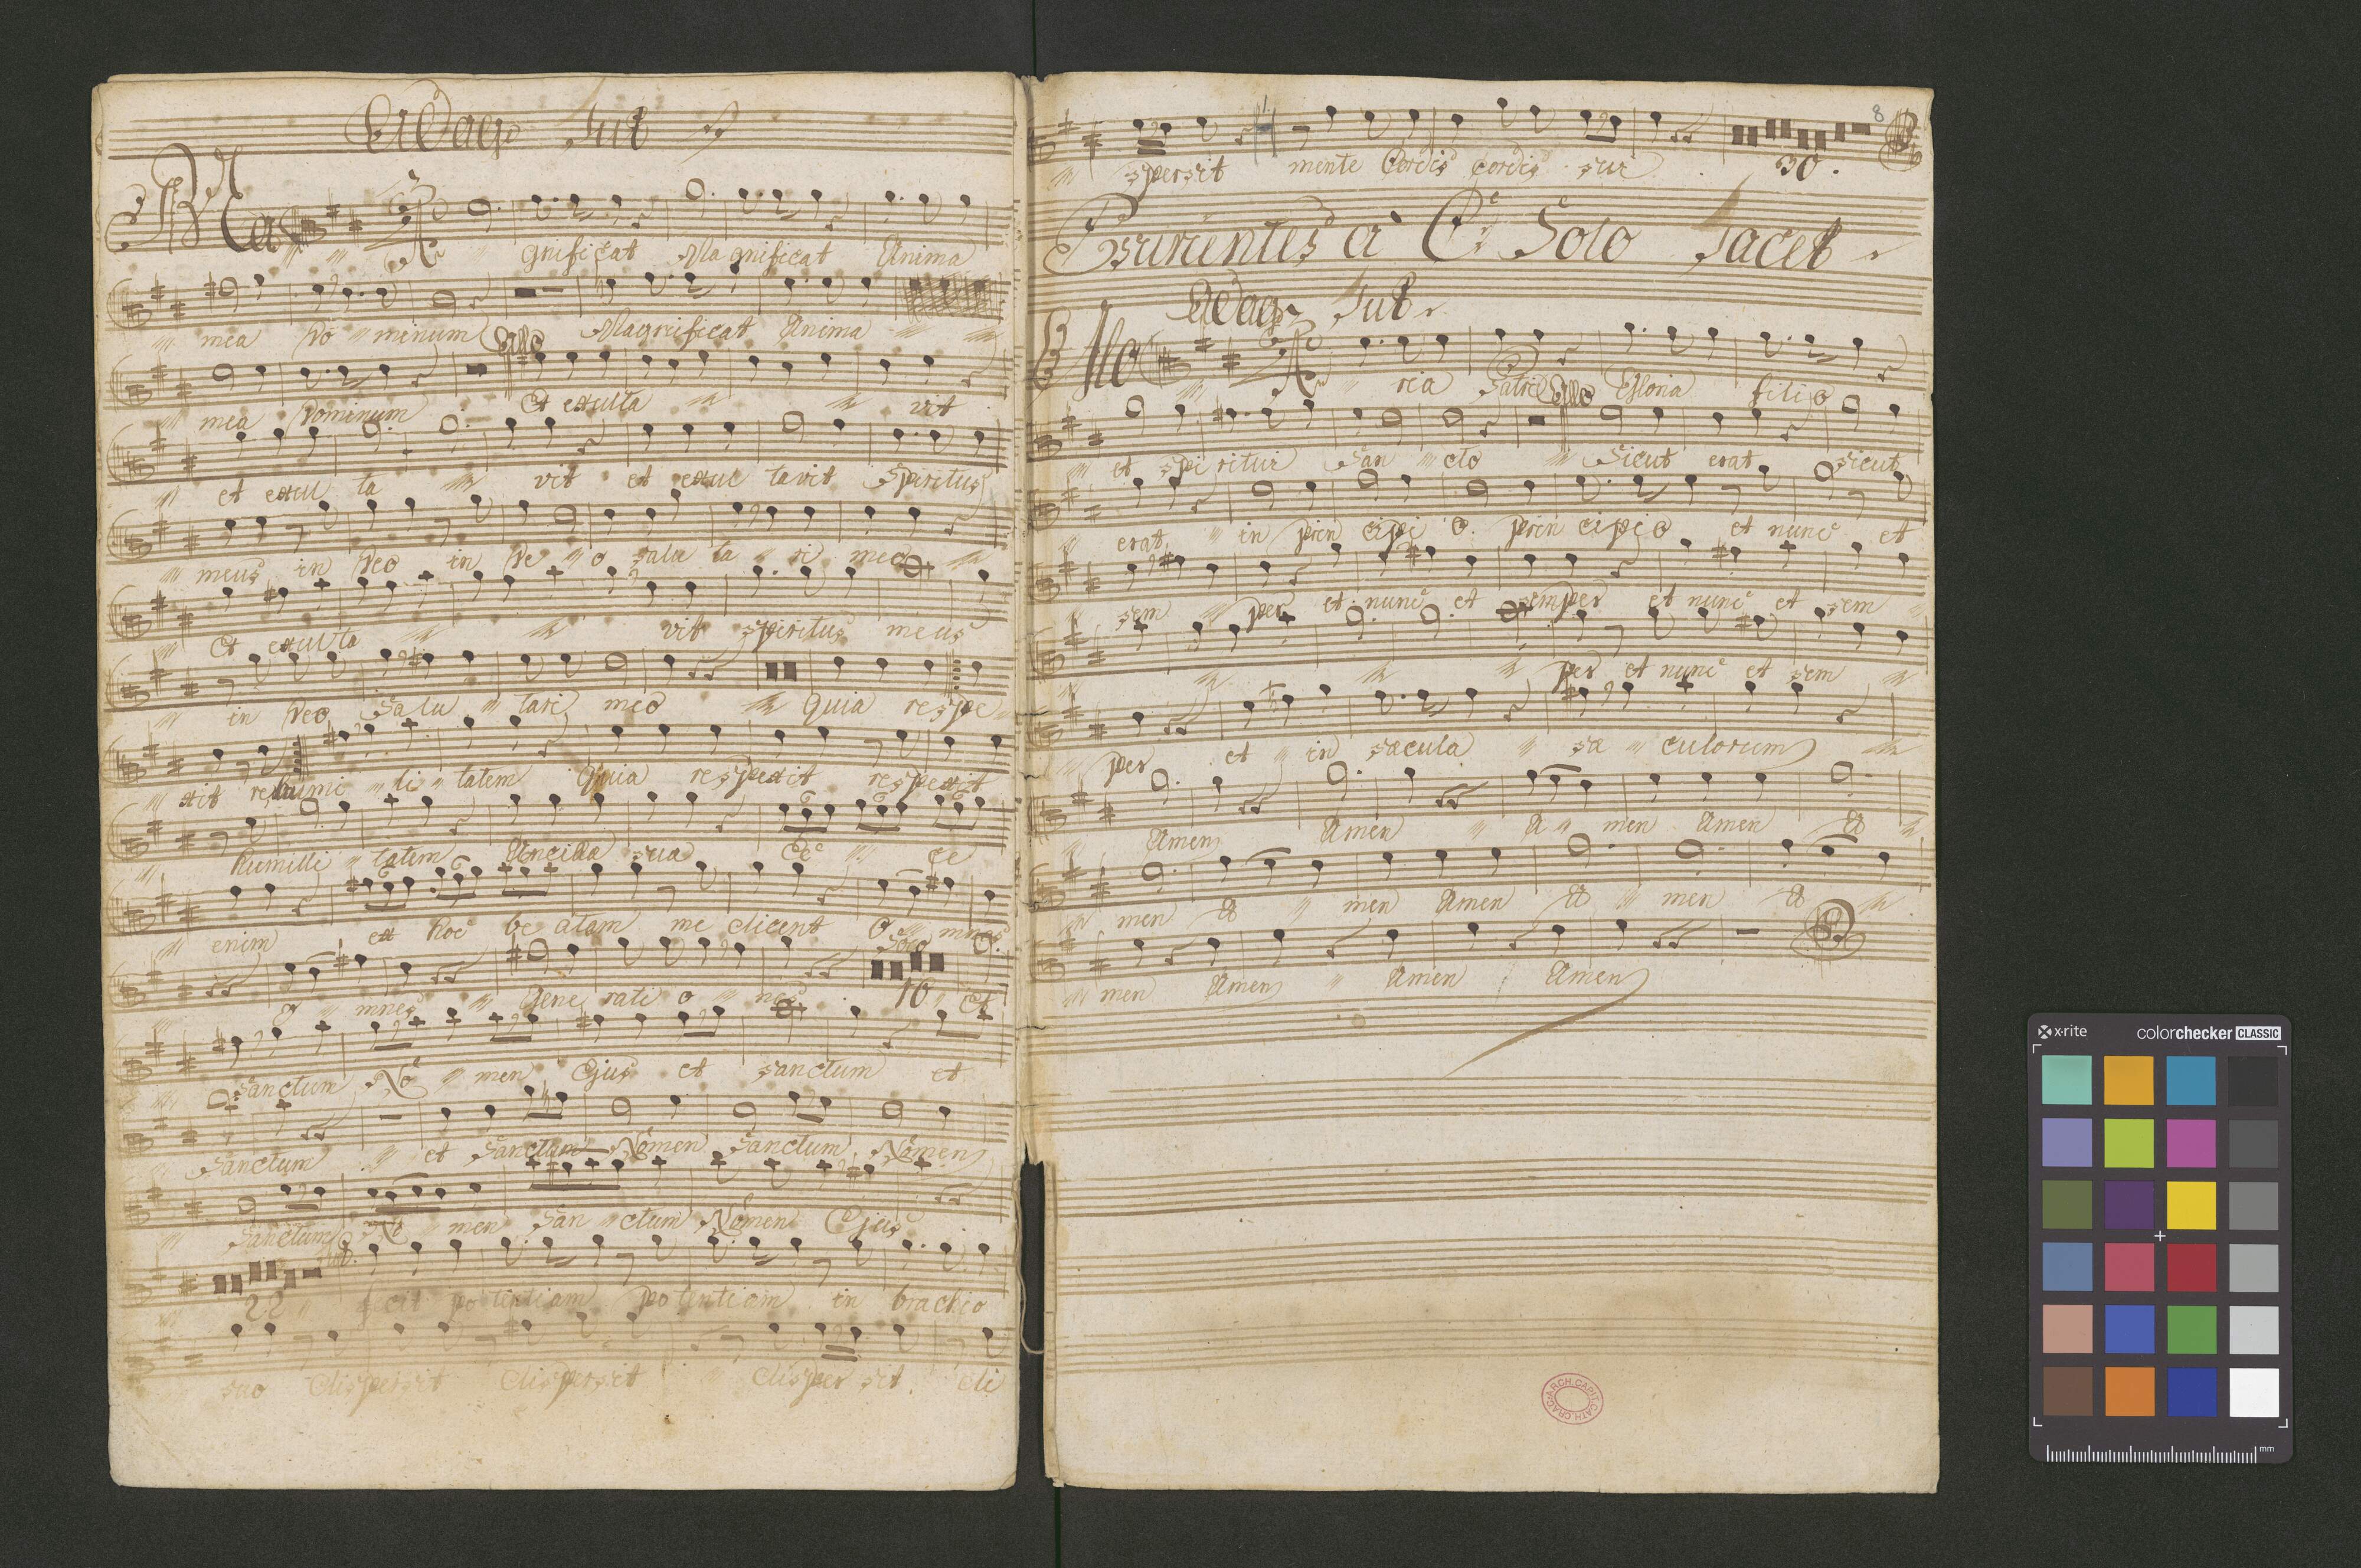 Adag: Tut
Ma gnificat Magnificat Anima
mea Do minum Allo Magnificat Anima
mea Dominum Et exulta vit
et exul ta vit et exul tavit Spiritus
meus in Deo in De o salu ta ri meo
Et exulta vit spiritus meus
in Deo Salu tari meo Quia respe
xit humi li tatem Quia respexit respexit
humili tatem Ancilla sua Ec ce
enim ex hoc be atam me dicent O mnes
Solo
O mnes Gene rati o nes 10 Et
Sanctum No men Ejus et sanctum et
Sanctum et Sanctum Nomen Sanctum Nomen
Sanctum No men San ctum Nomen Ejus
22 fecit potentiam potentiam in brachio
suo dispersit dispersit disper sit di
8
spersit mente Cordis cordis sui 30.
Esurientes à C: Solo Tacet
Adag: Tut
Glo ria Patri Allo Gloria filio
et spiritui San cto Sicut erat sicut
erat in prin cipi o prin cipio et nunc et
sem per et nunc et semper et nunc et sem
per et nunc et sem
per et in sæcula sæ culorum
Amen Amen A men Amen A
men A men Amen A men A
men Amen Amen Amen
ARCH. CAPIT. CATH. CRAC.
x-rite colorchecker CLASSIC
mm